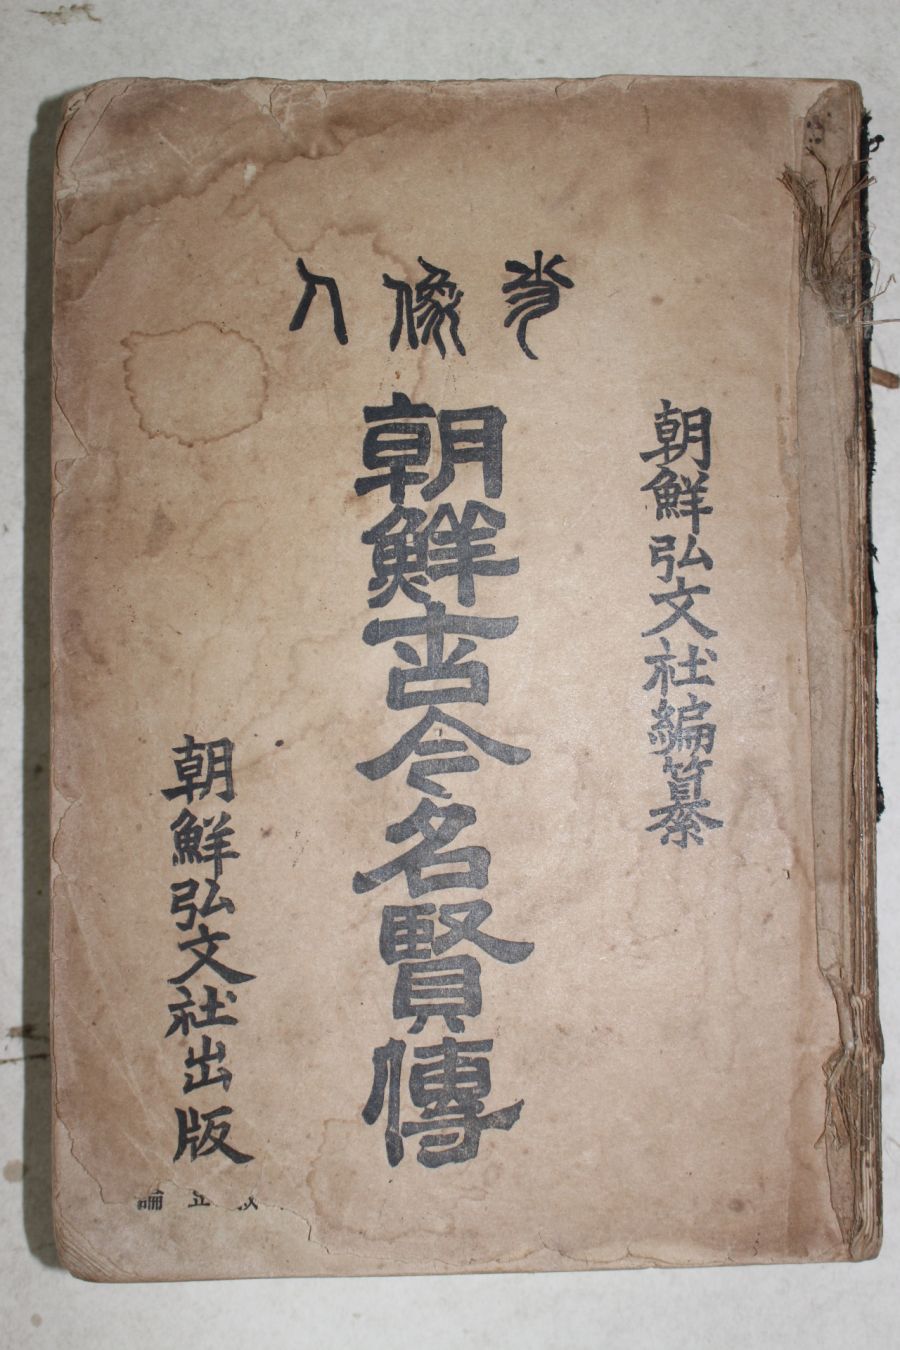 肖像入
朝鮮弘文社編纂
朝鮮古今名賢傳
朝鮮弘文社出版
論